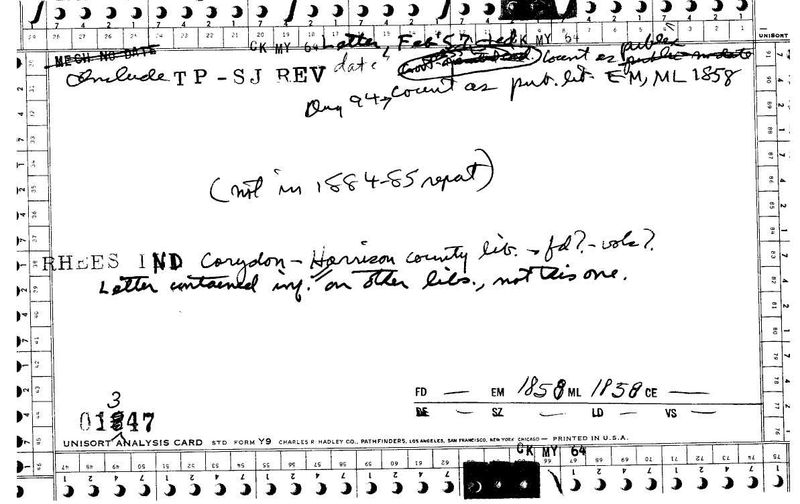 CK MY 64 Letter, Feb '57 CK MY 64
UNISORT
MECH NO DATE date count as public
Include TP-SJ REV
Aug 94, count as pub. lib EM, ML 1858
(not in 1884-85 repat)
RHEES IND Corydon - Harrison county lib. - fd? - vols?
Letter contained inf. on other libs., not this one.
FD — EM 1858 ML 1858 CE —
DE — SZ — LD — VS —
3
01847
UNISORT ANALYSIS CARD STD FORM Y9 CHARLES R HADLEY CO., PATHFINDERS, LOS ANGELES, SAN FRANCISCO, NEW YORK CHICAGO — PRINTED IN U.S.A.
CK MY 64